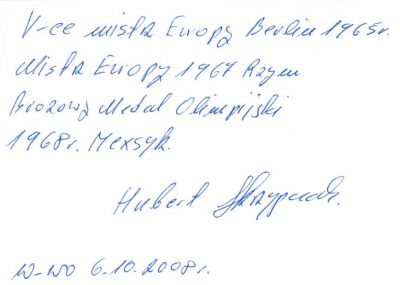 V-ce mistrz Europy Berlin 1965r.
Mistrz Europy 1967 Rzym
Brązowy Medal Olimpijski
1968r. Meksyk.
Hubert Skrzypczak.
W-wo 6.10.2008r.